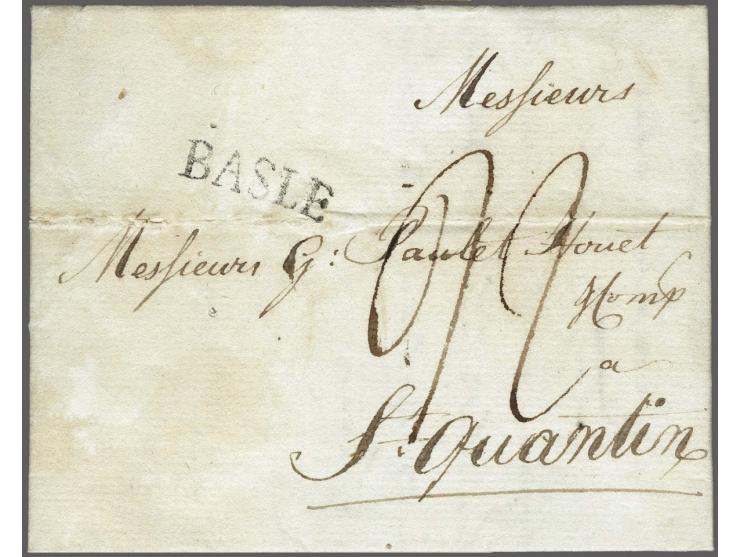 Messieurs
BASLE
Messieurs G: Paulet Houet
& Comp
a
St. Quantin